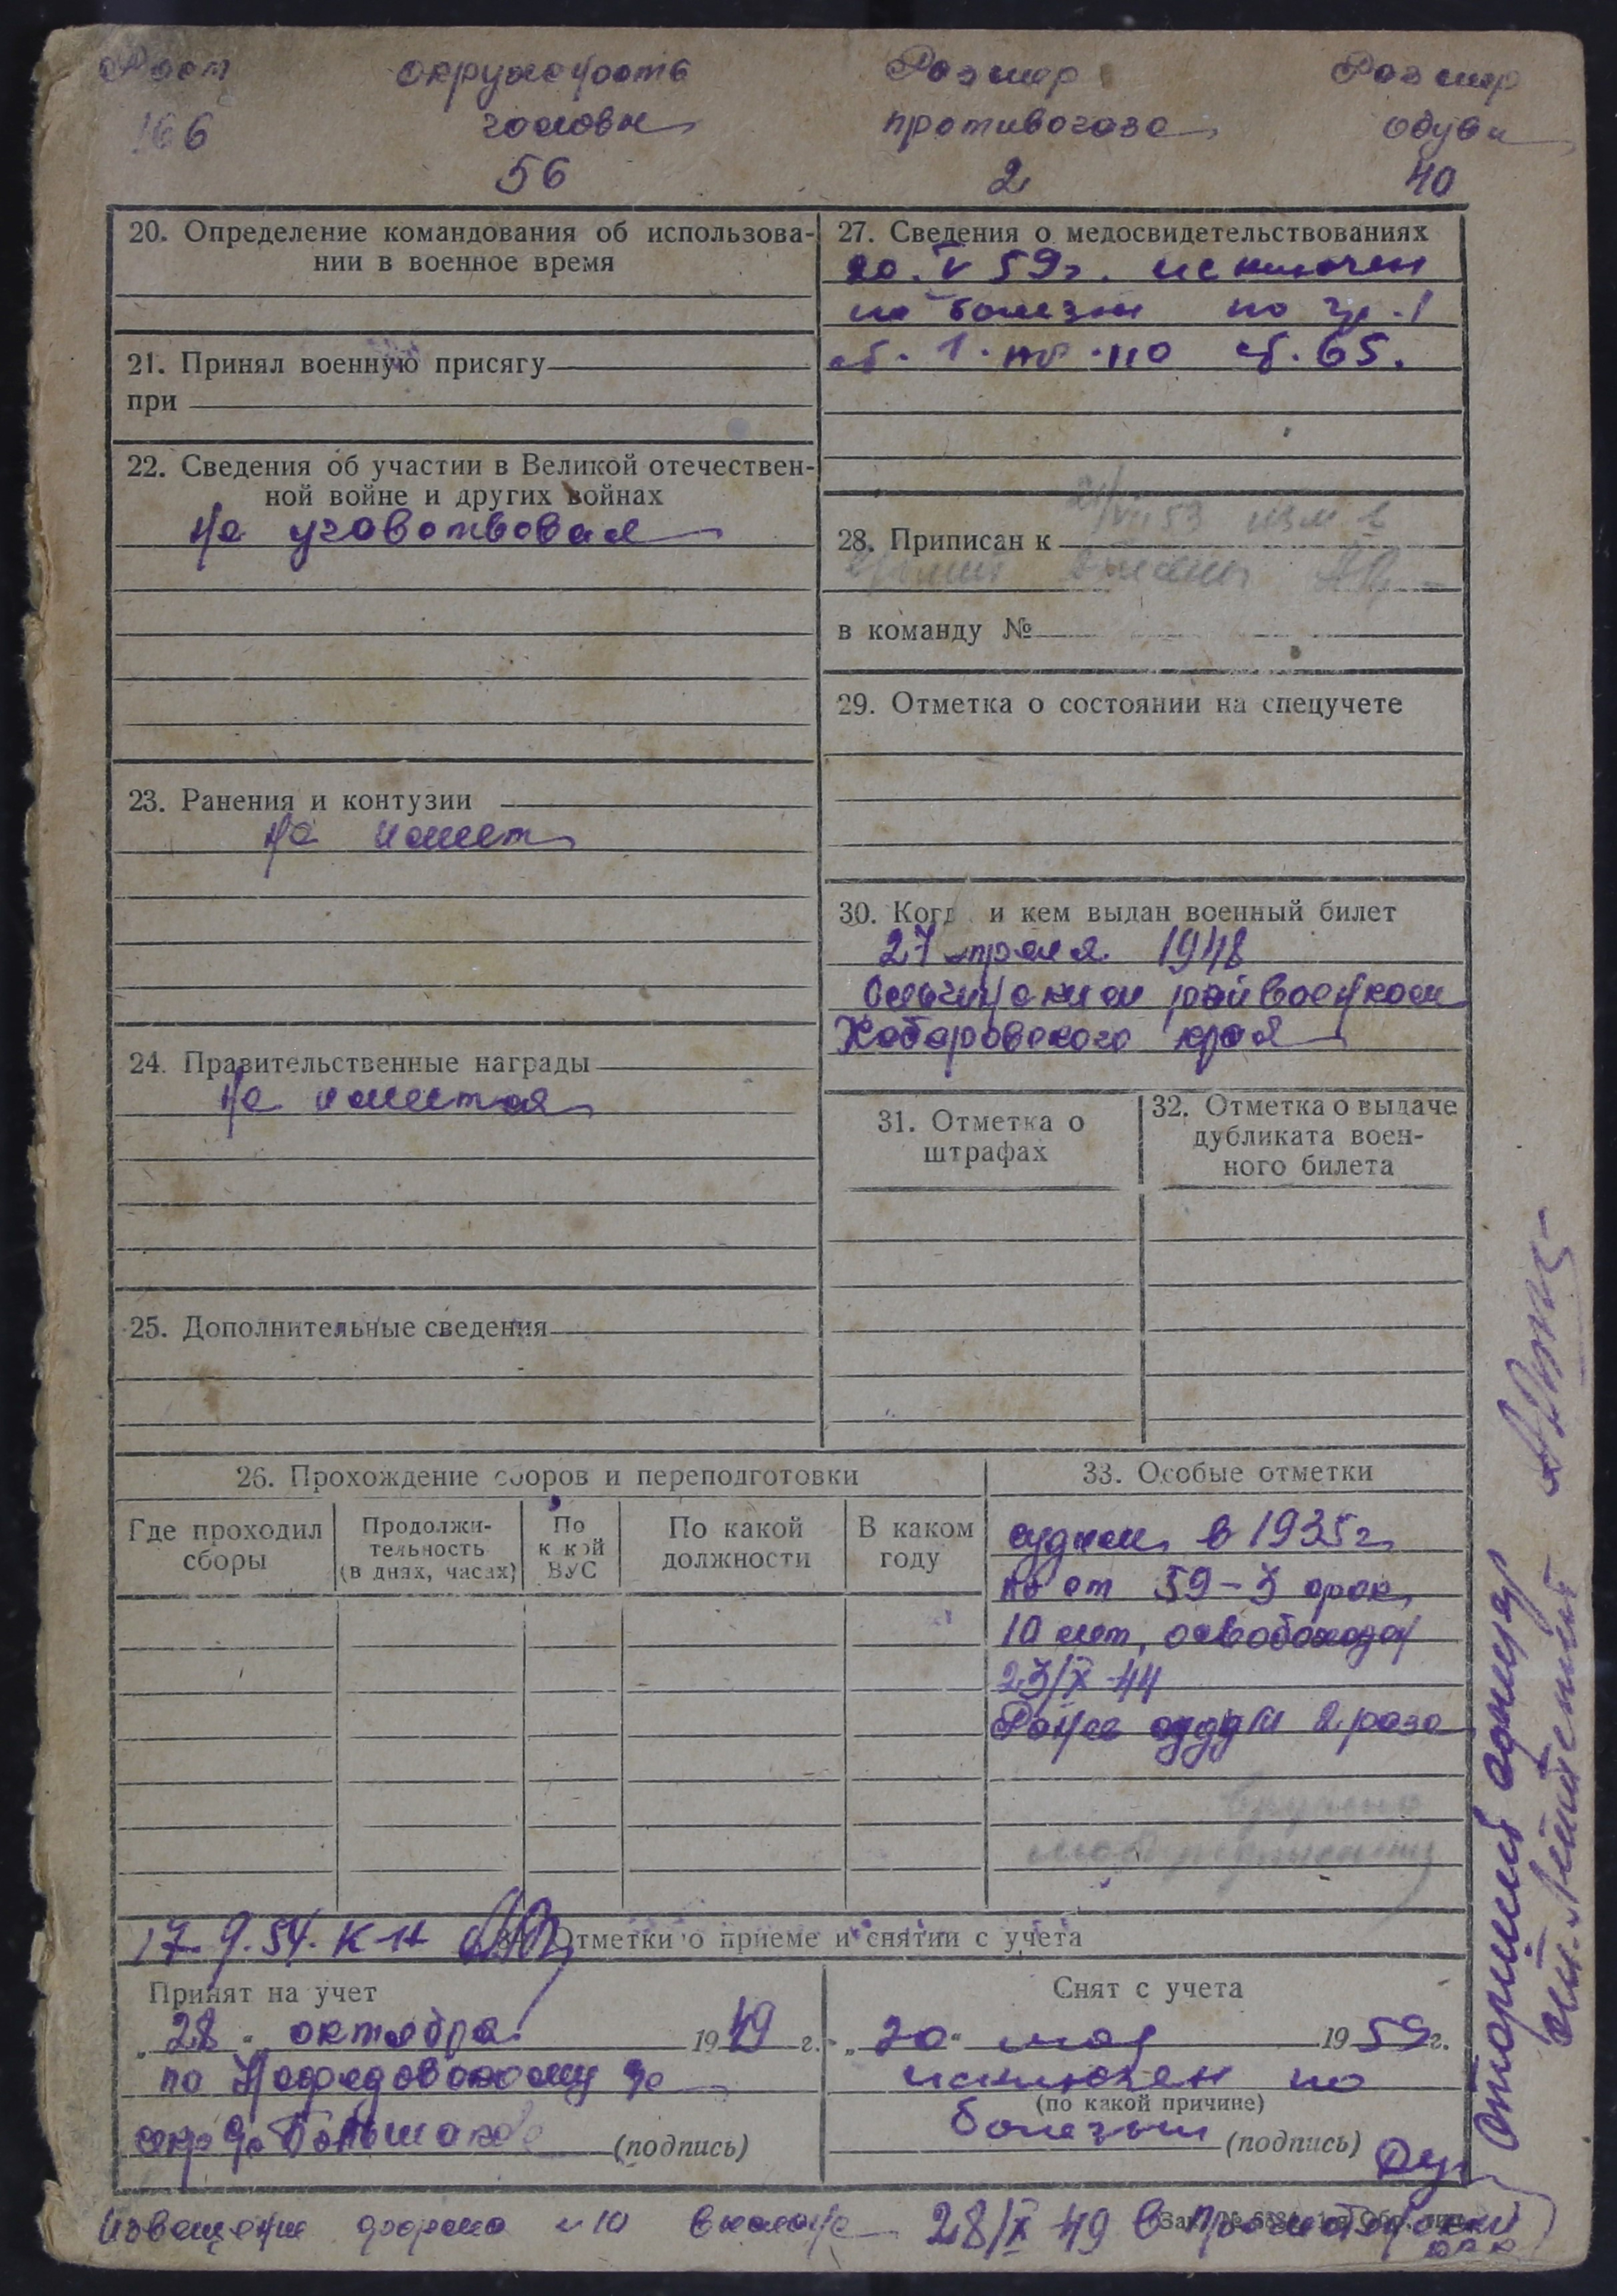 Рост
166
окружность
головы
56
Размер
противогаза
2
Размер
обуви
40
20. Определение командования об использова-
нии в военное время
21. Принял военную присягу
при
22. Сведения об участии в Великой отечествен-
ной войне и других войнах
Не участвовал
23. Ранения и контузии
Не имеет
24. Правительственные награды
Не имеется
25. Дополнительные сведения
27. Сведения о медосвидетельствованиях
20. V 59г. исключен
по болезни по гр. 1
ст. 1 пр. 110 ст. 65.
28. Приписан к
в команду №
29. Отметка о состоянии на спецучете
30. Когда и кем выдан военный билет
27 апреля 1948
райвоенком
Хабаровского края
31. Отметка о
штрафах
32. Отметка о выдаче
дубликата воен-
ного билета
26. Прохождение сборов и переподготовки
Где проходил
сборы
Продолжи-
тельность
(в днях, часах)
По
какой
ВУС
По какой
должности
В каком
году
33. Особые отметки
судим в 1935г
по ст 59-3 срок
10 лет, освобожден
23/X-44
Ранее судим 2 раза
17.9.54. К-н
Отметки о приеме и снятии с учета
Принят на учет
„28“ октября 1949 г.
по
(подпись)
Снят с учета
„20“ мая 1959г.
исключен по
(по какой причине)
болезни
(подпись)
Старший офицер
Лейтенант
Извещение форма №10 28/X 49